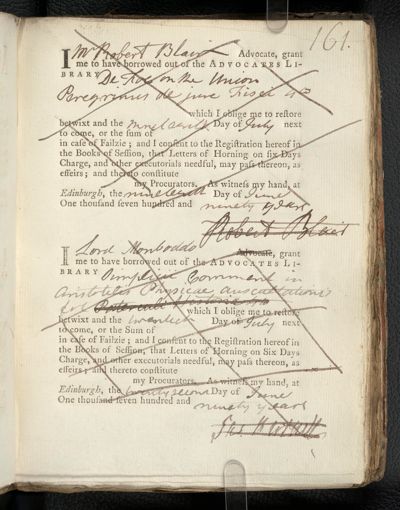 161.
I Mr Robert Blair Advocate, grant
me to have borrowed out of the ADVOCATES LI-
BRARY De Foe on the Union
Peregrinus de jure
which I oblige me to restore
betwixt and the Day of July next
to come, or the sum of
in case of Failzie; and I consent to the Registration hereof in
the Books of Session, that Letters of Horning on six Days
Charge, and other executorials needful, may pass thereon, as
effeirs; and thereto constitute
my Procurators. As witness my hand, at
Edinburgh, the nineteenth Day of June
One thousand seven hundred and
ninety years
Robert Blair
I Lord Monboddo Advocate, grant
me to have borrowed out of the ADVOCATES LI-
BRARY Simplicii Comment in
Aristotelis Physicae auscultationis
fol
which I oblige me to restore
betwixt and the twentieth Day of July next
to come, or the Sum of
in case of Failzie; and I consent to the Registration hereof in
the Books of Session, that Letters of Horning on Six Days
Charge, and other executorials needful, may pass thereon, as
effeirs; and thereto constitute
my Procurators. As witness my hand, at
Edinburgh, the twenty second Day of June
One thousand seven hundred and
ninety years
Jas Burnett